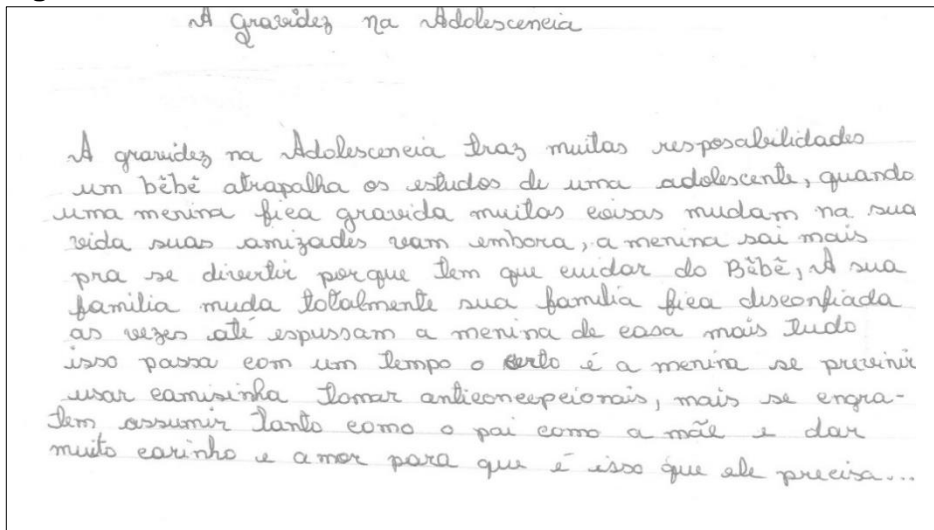 A gravidez na Adolescencia
A gravidez na Adolescencia traz muitas resposabilidades
um bêbê atrapalha os estudos de uma adolescente, quando
uma menina fica gravida muitas coisas mudam na sua
vida suas amizades vam embora, a menina sai mais
pra se divertir porque tem que cuidar do Bêbê, A sua
familia muda totalmente sua familia fica disconfiada
as vezes até espussam a menina de casa mais tudo
isso passa com um tempo o certo é a menina se previnir
usar camisinha tomar anticoncepcionais, mais se engra-
tem assumir tanto como o pai como a mãe e dar
muito carinho e amor para que é isso que ele precisa...